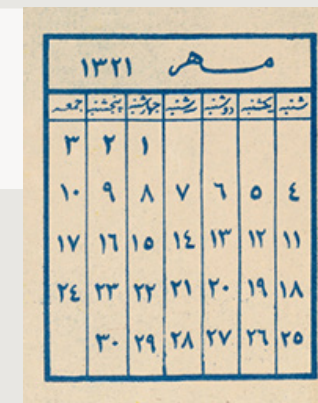 مهر ۱۳۲۱
شنبه یکشنبه دوشنبه سه‌شنبه چهارشنبه پنجشنبه جمعه
۱ ۲ ۳
٤ ٥ ٦ ۷ ۸ ۹ ۱۰
۱۱ ۱۲ ۱۳ ۱٤ ۱٥ ۱٦ ۱۷
۱۸ ۱۹ ۲۰ ۲۱ ۲۲ ۲۳ ۲٤
۲٥ ۲٦ ۲۷ ۲۸ ۲۹ ۳۰